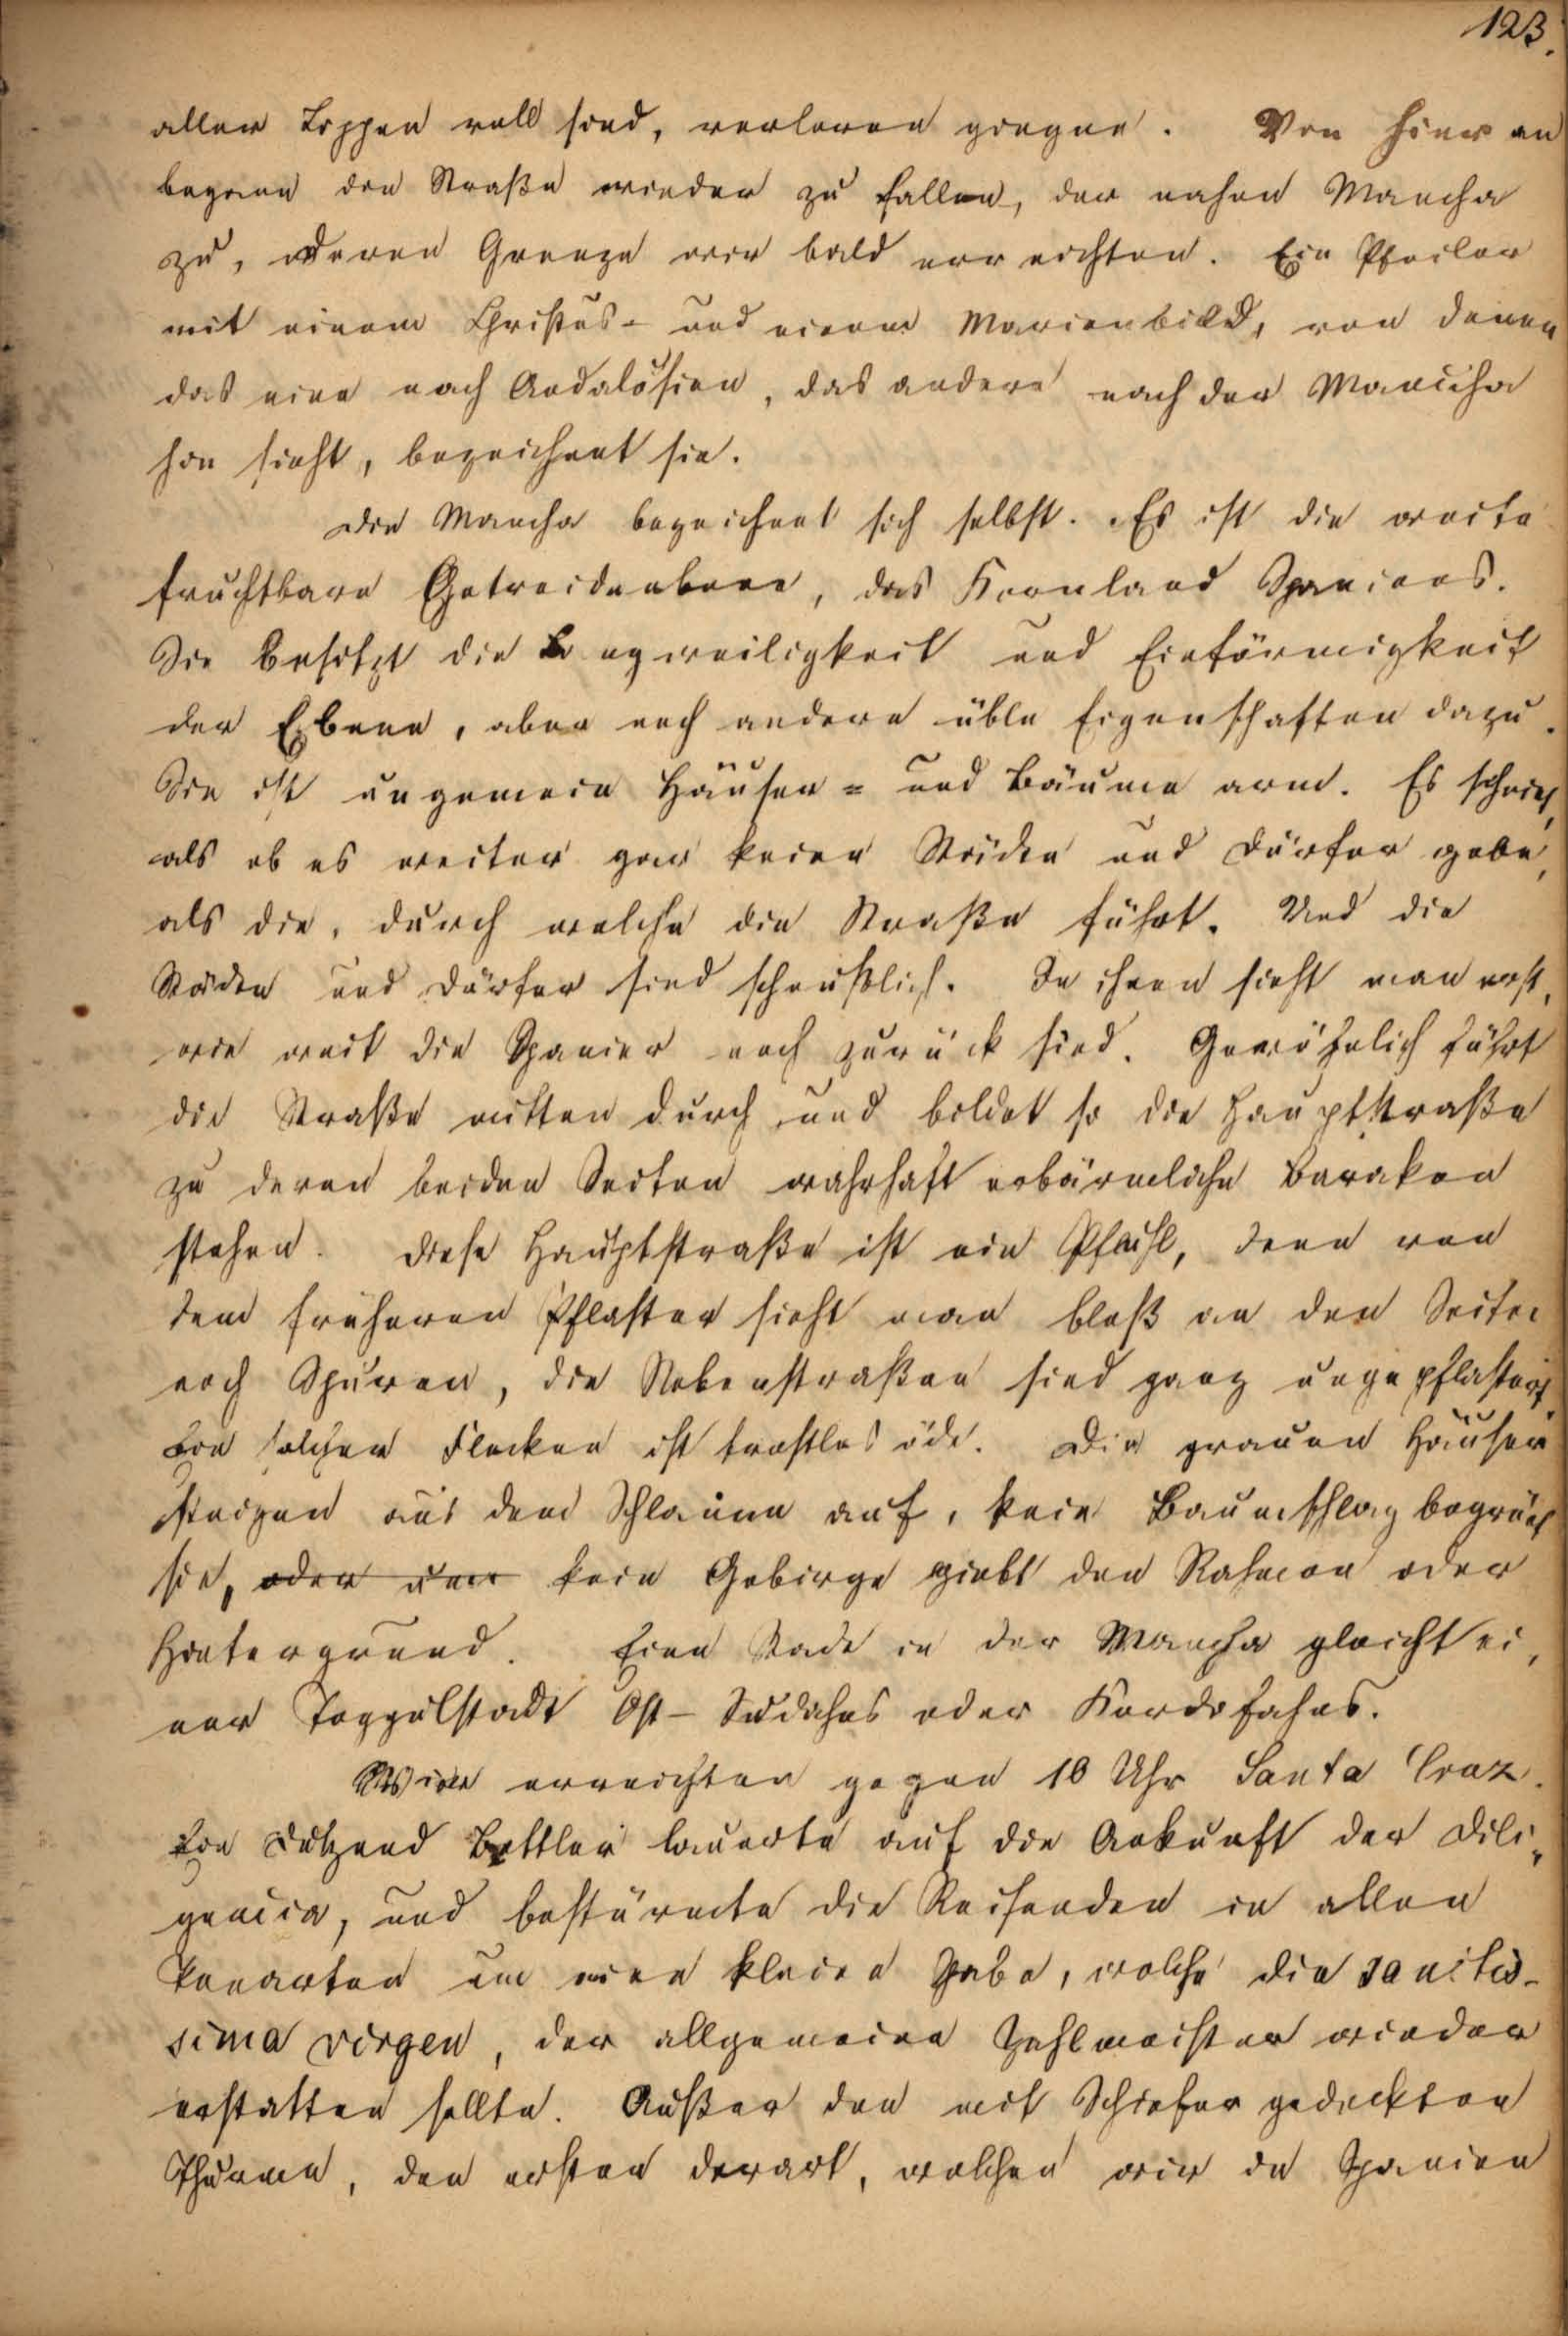 123.
aller Lippen voll sind, verloren gingen. Von hier an
begann die Straße wieder zu fallen, der nahen Mancha
zu, deren Grenze wir bald erreichten. Ein Pfeiler
mit einem Christus- und einem Marienbild, von denen
das eine nach Andalusien, das andere nach der Mancha
hin sieht, bezeichnet sie.
Die Mancha bezeichnet sich selbst. Es ist die weite
fruchtbare Getreideebene, das Kornland Spaniens.
Sie besitzt die Langweiligkeit und Einförmigkeit
der Ebene, aber noch andere üble Eigenschaften dazu.
Sie ist ungemein Häuser- und Bäume arm. Es scheint,
als ob es weiter gar keine Städte und Dörfer gebe,
als die, durch welche die Straße führt. Und die
Städte und Dörfer sind scheußlich. In ihnen sieht man erst,
wie weit die Spanier noch zurück sind. Gewöhnlich führt
die Straße mitten durch und bildet so die Hauptstraße
zu deren beiden Seiten wahrhaft erbärmliche Baraken
stehen. Diese Hauptstraße ist ein Pfuhl, denn von
dem früheren Pflaster sieht man bloß an den Seiten
noch Spuren, die Nebenstraßen sind ganz ungepflastert.
Ein solcher Flecken ist trostlos öde. Die grauen Häuser
steigen aus dem Schlamme auf, kein Baumschlag begrünt
sie, oder kein Gebirge giebt den Rahmen oder
Hintergrund. Eine Stadt in der Mancha gleicht ei,
ner Toggulstadt Ost-Sudahns oder Kordofahns.
Wir erreichten gegen 10 Uhr Santa Cruz.
Ein Dutzend Bettler lauerte auf die Ankunft der Dili,
gencia, und bestürmte die Reisenden in allen
Tonarten um eine kleine Gabe, welche die sanctis-
sima virgen, der allgemeine Zahlmeister wieder
erstatten sollte. Außer den mit Schiefer gedeckten
Thurme, den ersten derart, welchen wir in Spanien